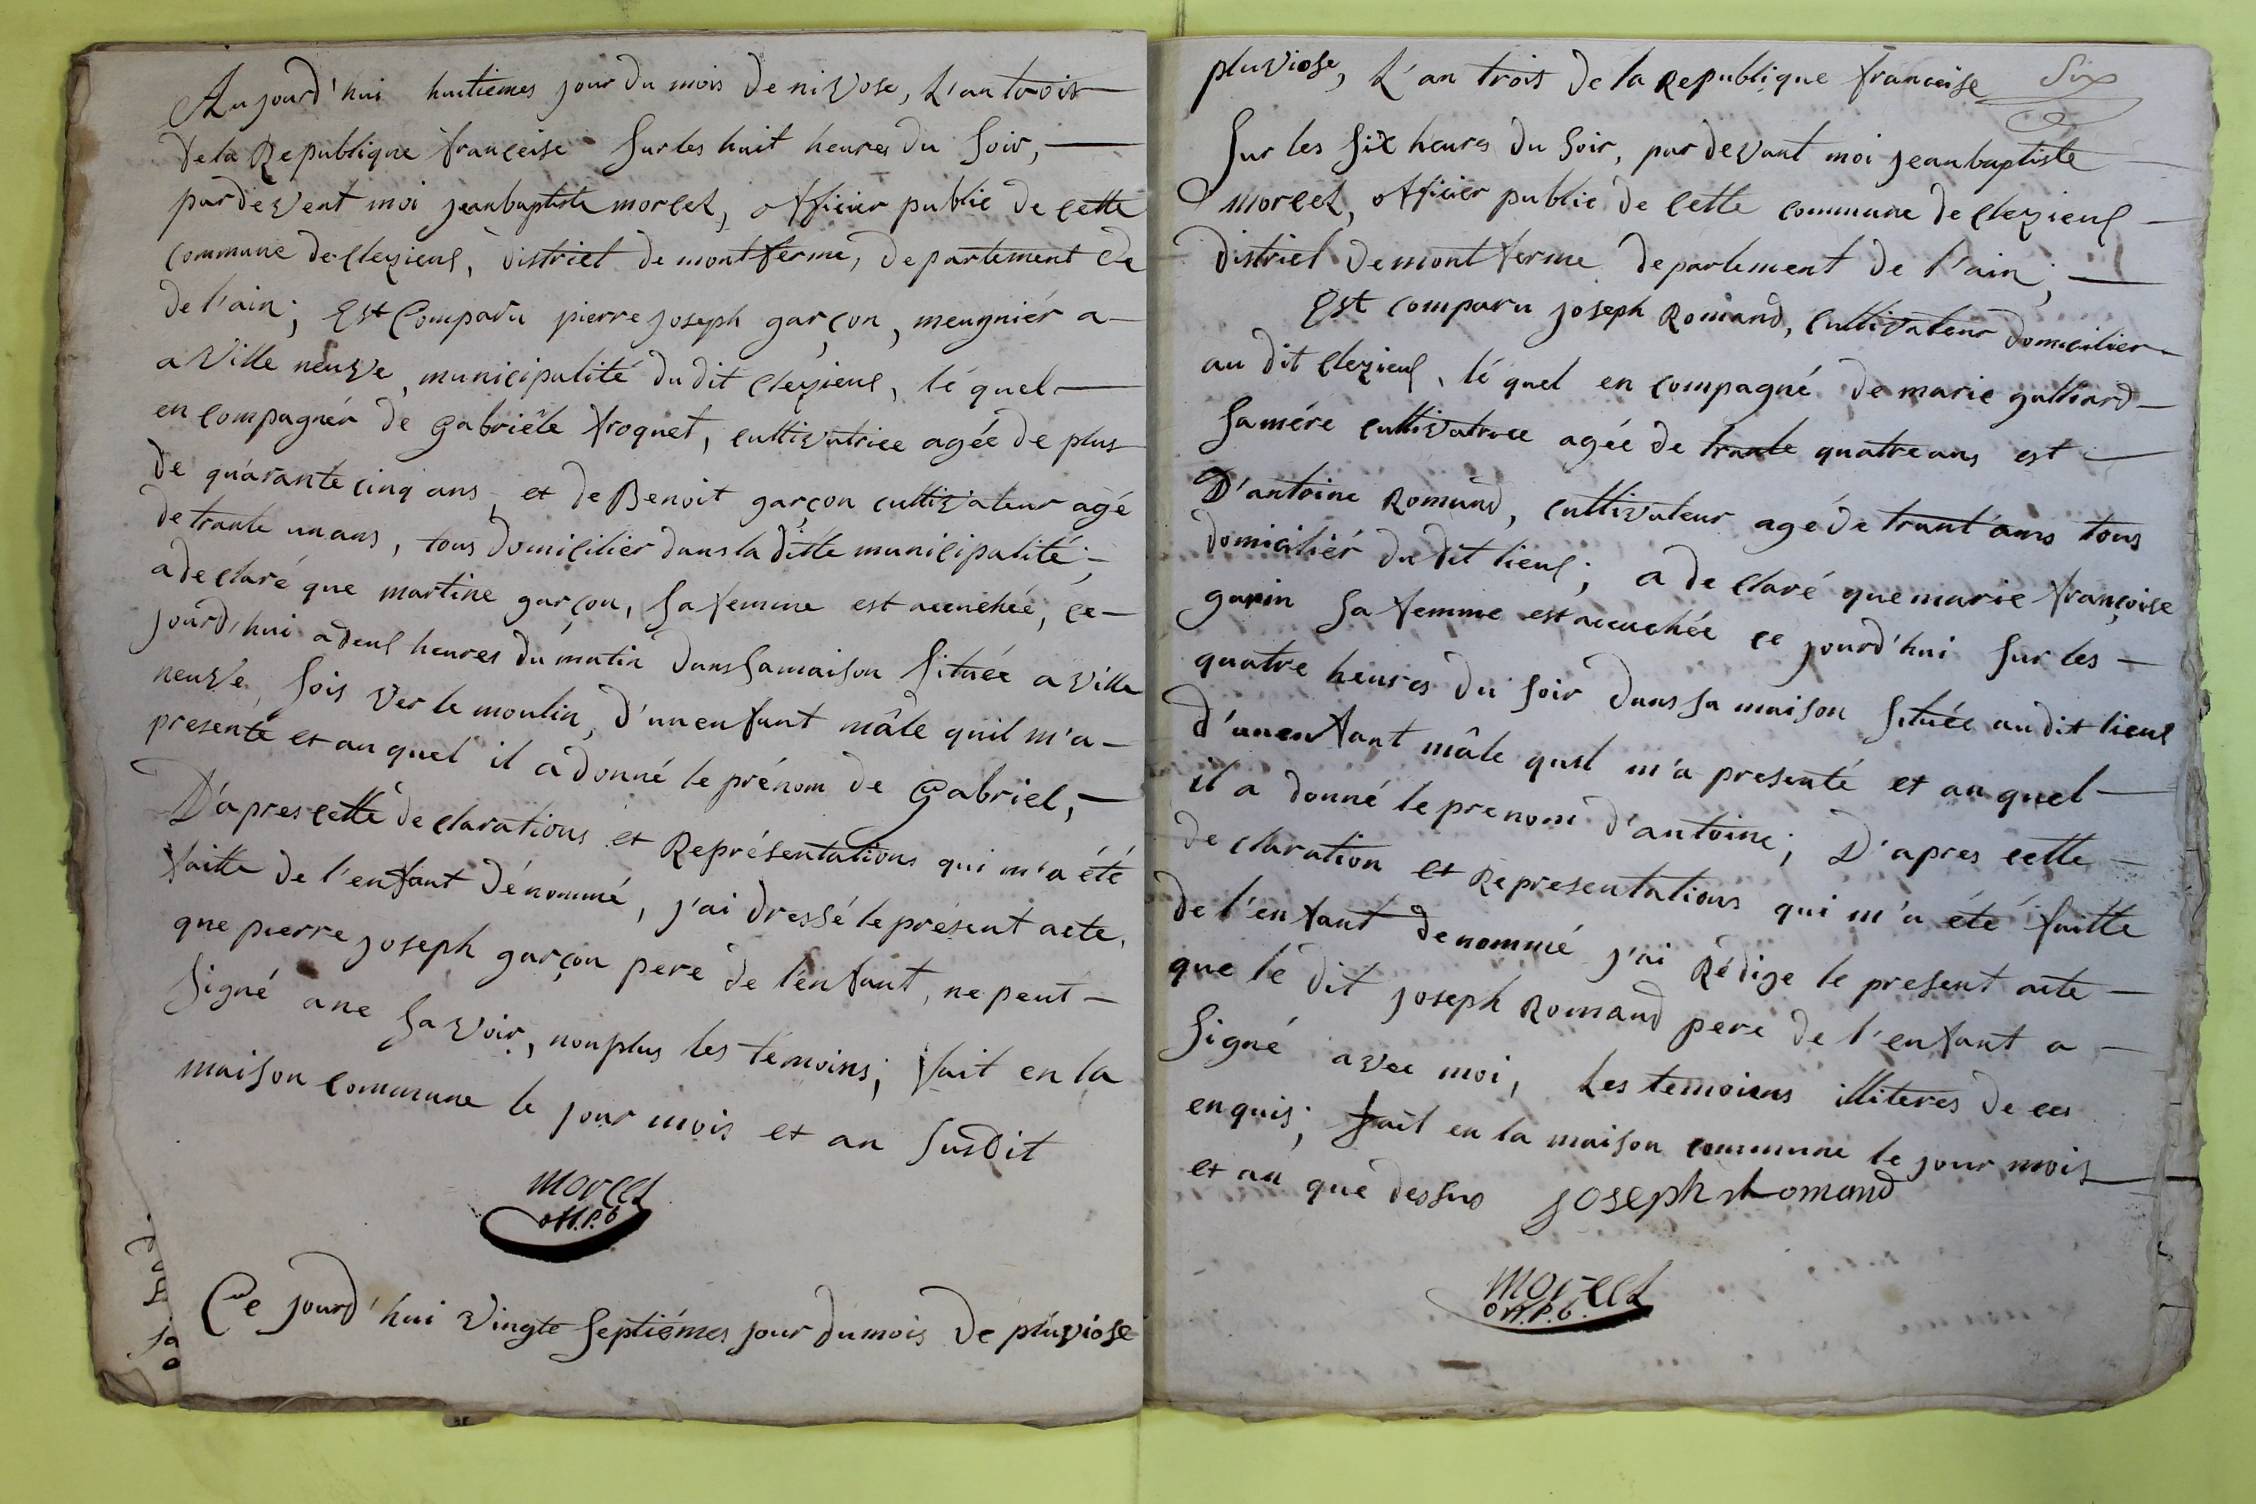 Aujourd'hui huitiemes jour du mois de nivose, L'an trois
de la Republique françeise Sur les huit heures du Soir,
pardevent moi jeanbaptiste morcel, officier public de cette
commune de Cleyzieul, district de montferme, departement de
de l'ain; Est Comparu pierre joseph garçon, meugniér a
a Ville neuve, municipalité du dit Cleyzieul, léquel
en compagnér de Gabriéle froquet, cultivatrice agée de plus
de quarante cinq ans, et de Benoit garçon cultivateur agé
de trante un ans, tous Domicilier dans la ditte municipalité;
a declaré que martine garçon, Sa femme est accuchée, ce
jourd'hui a deul heures du matin dans Sa maison Située a Ville
neuve, Sois Ver le moulin, d'un enfant mâle quil m'a
presenté et au quel il a donné le prénom de Gabriel,
D'apres cette declarations et Représentations qui m'a été
faitte de l'enfant dénommé, j'ai dressé le présent acte,
que pierre joseph garçon pere de l'enfant, ne peut
Signé a ne Savoir, nonplus les témoins; fait en la
maison commune le jour mois et an Susdit
Morcel
off. P. b
Ce jourd'hui vingte Septiémes jour du mois de pluviose
Six
pluviose, L'an trois de la Republique franceise
Sur les Six heures du Soir, pardevant moi jeanbaptiste
morcel, officier public de cette commune de Cleyzieul
district de montferme departement de l'ain;
Est comparu joseph Romand, cultivateur domicilier
au dit Cleyzieul, léquel en compagné de marie galliard
Samére cultivatrice agée de trante quatre ans est
D'antoine Romand, cultivateur agé de trant'ans tous
domiciliér du dit lieul; a declaré que marie françoise
garin Sa femme est accuchée ce jourd'hui Sur les
quatre heures du Soir dans Sa maison Située au dit lieul
d'un enfant mâle quil m'a presenté et au quel
il a donné le prenom d'antoine; D'apres cette
declaration et Representations qui m'a été faitte
de l'enfant denommé j'ai Rédige le present acte
que lé dit joseph Romand pere de l'enfant a
Signé avec moi, Les temoiens illiteres de ces
enquis; fait en la maison commune le jour mois
et an que dessus joseph Romand
Morcel
off. P. b.